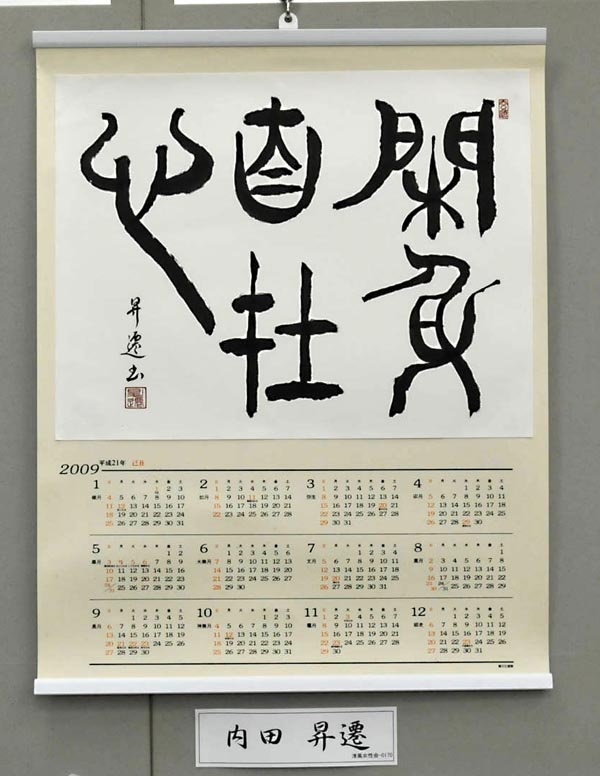 閑
昇遷書
2009 平成21年 己丑
1
1 2 3
4 5 6 7 8 9 10
11 12 13 14 15 16 17
18 19 20 21 22 23 24
25 26 27 28 29 30 31
2 如月
1 2 3 4 5 6 7
8 9 10 11 12 13 14
15 16 17 18 19 20 21
22 23 24 25 26 27 28
3 弥生
1 2 3 4 5 6 7
8 9 10 11 12 13 14
15 16 17 18 19 20 21
22 23 24 25 26 27 28
29 30 31
4 卯月
1 2 3 4
5 6 7 8 9 10 11
12 13 14 15 16 17 18
19 20 21 22 23 24 25
26 27 28 29 30
5
1 2
3 4 5 6 7 8 9
10 11 12 13 14 15 16
17 18 19 20 21 22 23
24/31 25 26 27 28 29 30
6 水無月
1 2 3 4 5 6
7 8 9 10 11 12 13
14 15 16 17 18 19 20
21 22 23 24 25 26 27
28 29 30
7 文月
1 2 3 4
5 6 7 8 9 10 11
12 13 14 15 16 17 18
19 20 21 22 23 24 25
26 27 28 29 30 31
8 葉月
1
2 3 4 5 6 7 8
9 10 11 12 13 14 15
16 17 18 19 20 21 22
23/30 24/31 25 26 27 28 29
9 長月
1 2 3 4 5
6 7 8 9 10 11 12
13 14 15 16 17 18 19
20 21 22 23 24 25 26
27 28 29 30
10 神無月
1 2 3
4 5 6 7 8 9 10
11 12 13 14 15 16 17
18 19 20 21 22 23 24
25 26 27 28 29 30 31
11 霜月
1 2 3 4 5 6 7
8 9 10 11 12 13 14
15 16 17 18 19 20 21
22 23 24 25 26 27 28
29 30
12 師走
1 2 3 4 5
6 7 8 9 10 11 12
13 14 15 16 17 18 19
20 21 22 23 24 25 26
27 28 29 30 31
内田 昇遷
清風女性会-0170